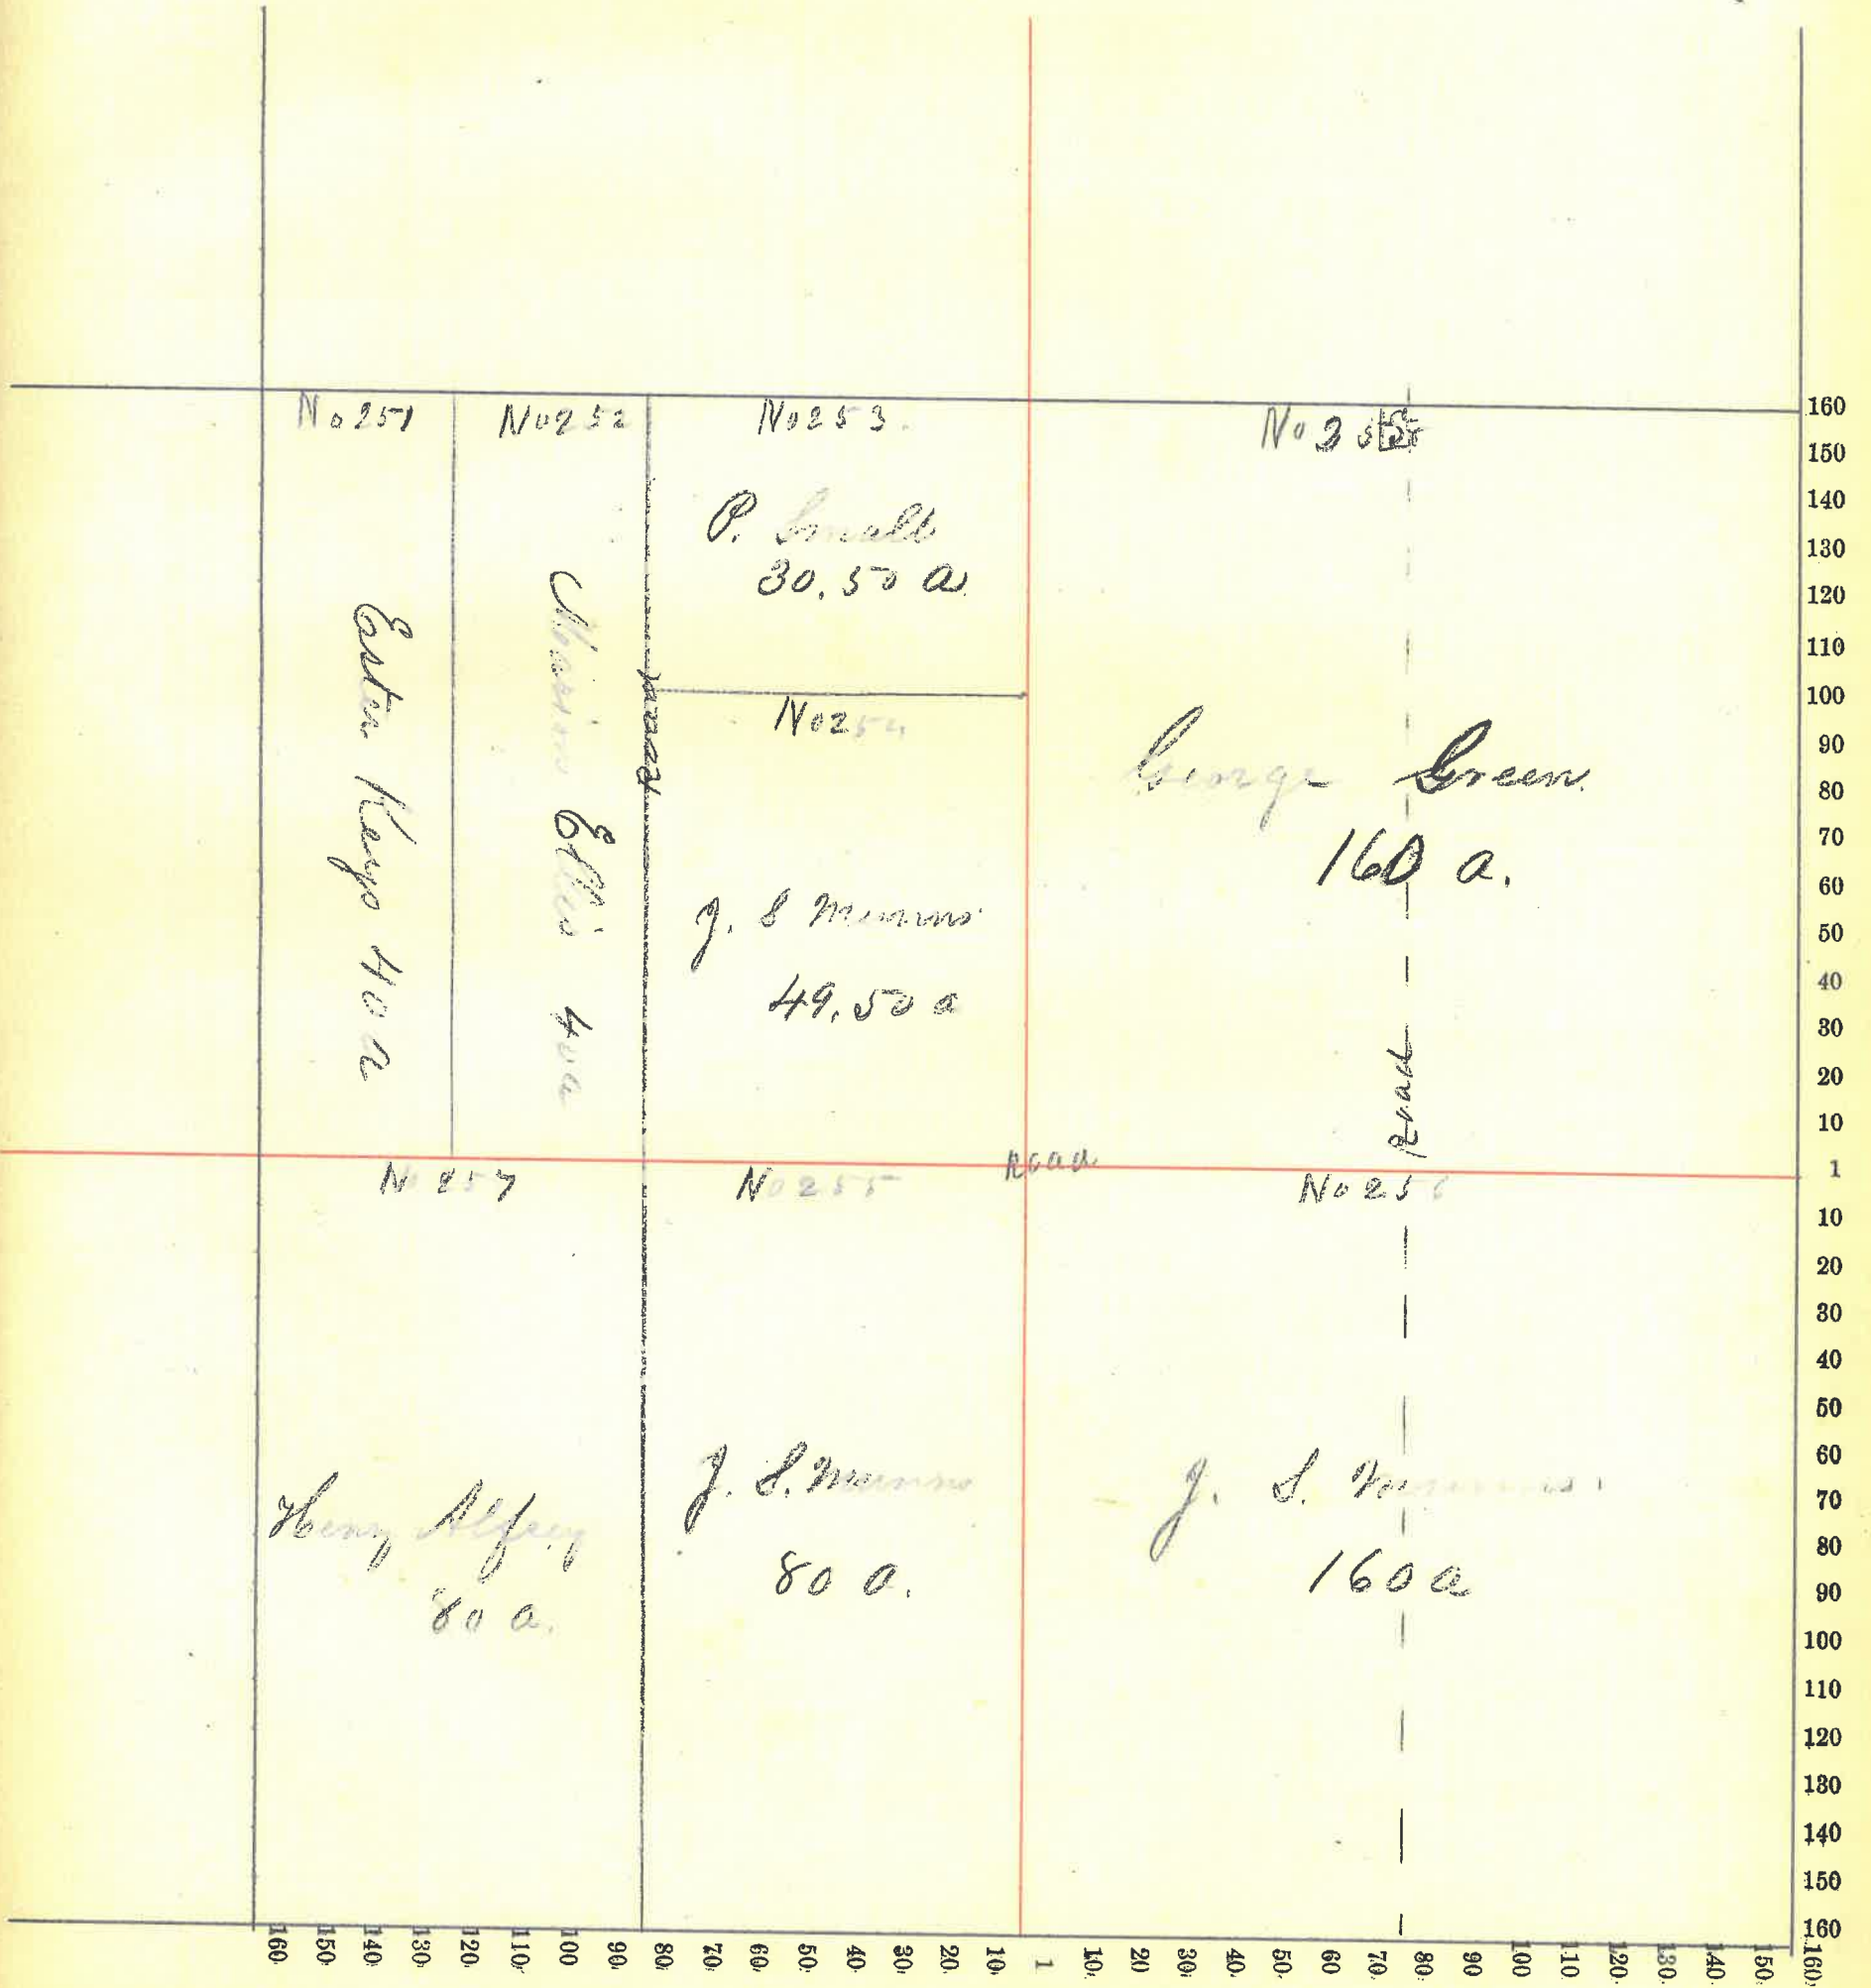 No 251
No 252
No 253
P. Small
30.50 a
Ester Keys 40 a
Ellis 40a
Road
No 254
J. S Munns
49.50 a
George Green.
160 a.
Road
Road
No 257
No 255
No 256
Henry Alfrey
80 a.
J. S. Munns
80 a.
J. S. Munns.
160 a
160
150
140
130
120
110
100
90
80
70
60
50
40
30
20
10
1
10
20
30
40
50
60
70
80
90
100
110
120
130
140
150
160
160 150 140 130 120 110 100 90 80 70 60 50 40 30 20 10 1 10 20 30 40 50 60 70 80 90 100 110 120 130 140 150 160